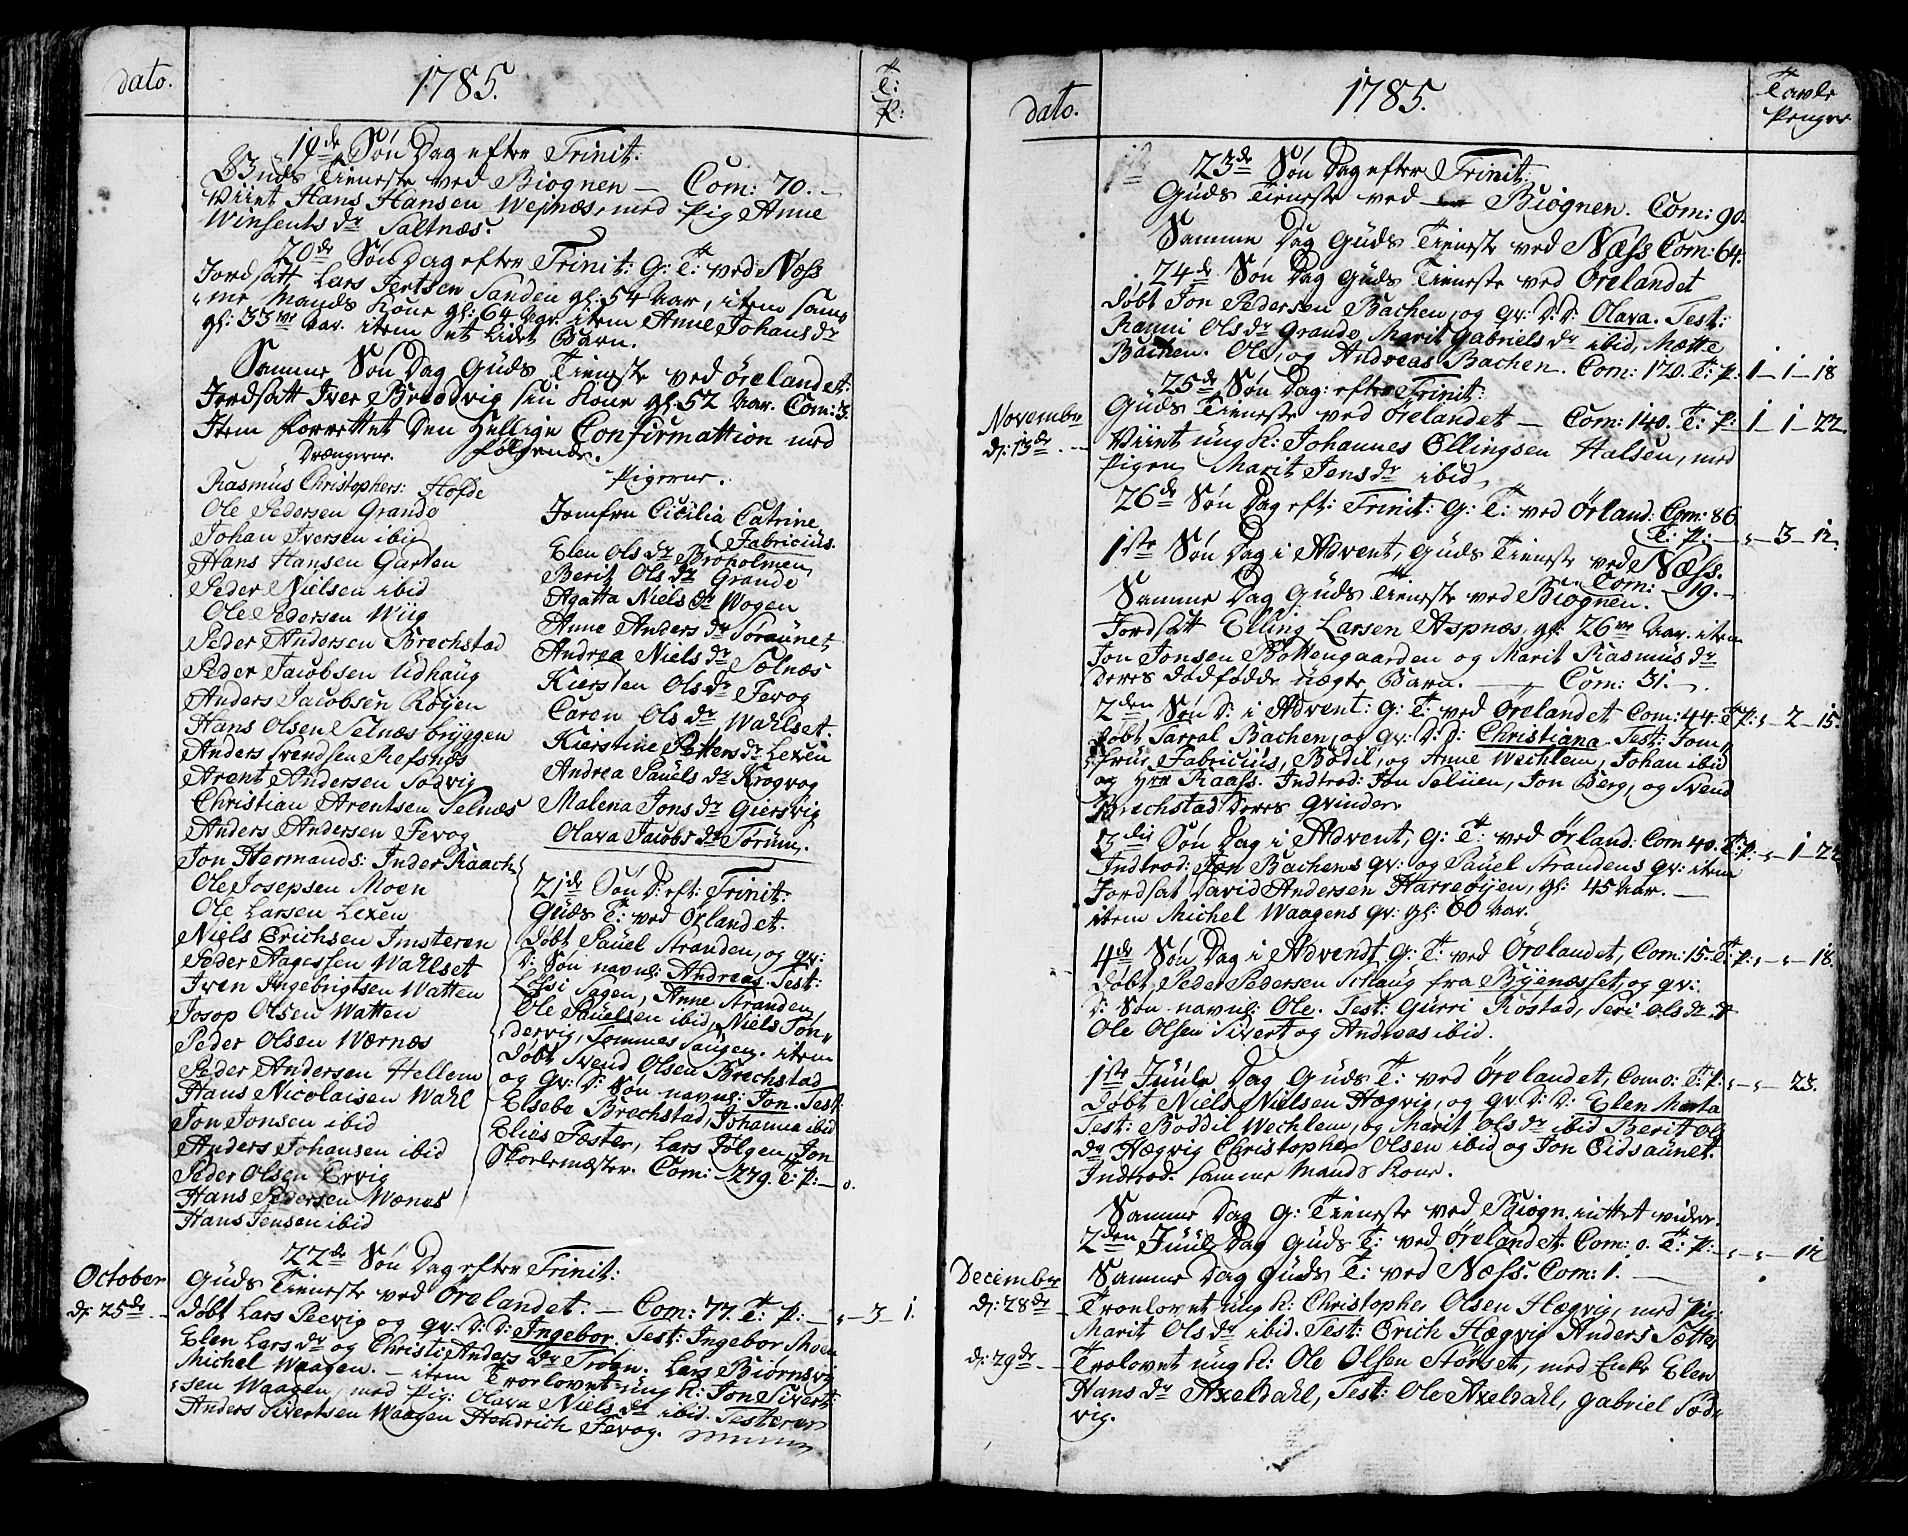 dato.
1785.
T: P:
19de Søn Dag efter Trinit.
Guds Tieneste ved Biognen — Com: 70. —
Viiet Hans Hansen Wejnæs, med Pig Anne
Winsents dr Saltnæs.
20de Søn Dag efter Trinit: G: T: ved Næss
Jordsatt Lars Jertsen Sanden gl: 54 Aar, item sam-
me Mands Kone gl: 64 Aar. item Anne Johans dr
gl: 33 ve Aar. item et lidet Barn.
Samme Søn Dag Guds Tieneste ved Ørelandet.
Jordsatt Iver Breedvig sin Kone gl. 52 Aar. Com: 3.
Item forrettet Den Hellige Confirmattion med
Drængerne. følgende.
Pigerne.
Rasmus Christophers: Hofde
Ole Pedersen Grande
Johan Iversen ibid
Hans Hansen Garten
Peder Nielsen ibid
Ole Pedersen Wiig
Peder Andersen Brechstad
Peder Jacobsen Udhaug
Anders Jacobsen Røyen
Hans Olsen Selnæs bryggen
Anders Svendsen Refsnes
Arent Andersen Sødvig
Christian Arentsen Selnæs
Anders Andersen Fevog
Jon Hermands: Inder Kraach
Ole Josepsen Moen
Ole Larsen Lexen
Niels Erichsen Imsteren
Peder Aagessen Wahlset
Iven Ingebrigtsen Watten
Josop Olsen Watten
Peder Olsen Wærnæs
Peder Andersen Hellem
Hans Nicolaisen Wahl
Jon Jonsen ibid
Anders Johansen ibid
Peder Olsen Ervig
Hans Pedersen Wænes
Hans Jensen ibid
Jomfru Cicilia Catrine
Fabricius.
Elen Ols dr Broholmen
Berit Ols dr Grande
Agatta Niels dr Wogen
Anne Anders dr Søraunet
Andrea Niels dr Sælnæs
Kiersten Ols dr Fevog
Caren Ols dr Wahlset.
Kierstine Petters dr Lexen
Andrea Pauels dr Krogvog
Malena Jons dr Giersvig
Olava Jacobs dr Torum.
21de Søn D: eft: Trinit:
Guds T: ved Ørlandet.
Døbt Pauel Stranden, og qv:
D: Søn navnl: Andreas Test:
Lessi Sagen, Anne Stranden
Ole Pauelsen ibid, Niels Jon-
dervig, Tommes Saugen. item
Døbt Svend Olsen Brechstad
og Qv: D: Søn navnl: Jon. Test:
Elsebe Brechstad, Johanna ibid
Elies Fæster, Lars Følgen, Jon
Skoelemæster. Com: 279. T: P: — 0.
22de Søn Dag efter Trinit:
October
d: 25de
Guds Tieneste ved Ørelandet. — Com: 77. T: P: — „ — 3 — 1.
Døbt Lars Peevig og qv: D: D: Ingebor. Test: Ingebor Moen
Elen Lars dr og Christi Anders dr Troen. Lars Biørnsvig
Michel Waagen. — item Troelovet ung K: Jon Sivert-
sen Waagen, med Pig: Olava Niels dr ibid. Testerer
Anders Sivertsen Waagen Hendrich Fevog.
dato.
1785.
Tavle Penger
23de Søn Dag efter Trinit:
Guds Tieneste ved Biognen. Com: 90.
Samme Dag Guds Tieneste ved Næss Com: 64.
24de Søn Dag Guds Tieneste ved Ørelandet
Døbt Jon Pedersen Bachen, og qv: D: D: Olava. Test:
Ranni Ols dr Grande, Marit Gabriels dr ibid, Mætte
Bachen. Ole, og Andreas Bachen. Com: 120. T: P: 1 — 1 — 18
25de Søn Dag: efter Trinit:
Novembr
d: 13de
Guds Tieneste ved Ørelandet — Com: 140. T: P: 1 — 1 — 22.
Viiet ung K: Johannes Ellingsen Halsen, med
Pigen Marit Jens dr ibid,
26de Søn Dag eft: Trinit: G: T: ved Ørland: Com: 86
T: P: — „ — 3 — 12.
1ste Søn Dag i Advent, Guds Tieneste ved Næss.
Com: 19. —
Samme Dag Guds Tieneste ved Biognen.
Jordsatt Elling Larsen Aspnæs, gl: 26 ve Aar. item
Jon Jonsen Bottengaarden og Marit Rasmus dr
Deres dødfødde uægte Barn. — Com: 31. —
2den Søn D: i Advent: G: T: ved Ørelandet Com: 44. T: P: „ — 2 — 15.
Døbt Parral Bachen, og qv: D: D: Christiana. Test: Jom-
frue Fabricius, Bodil, og Anne Wechlem, Johan ibid
og Hrr Kaass. Indtrod: Jon Seliien, Jon Berg, og Svend
Brechstad Deres Qvinder
3die Søn Dag i Advent, G: T: ved Ørland: Com 40. T: P: „ — 1 — 22
Indtrod: Jon Bachens qv: og Pauel Strandens qv: item
Jordsat David Andersen Harreøyen, gl: 45 Aar. —
item Michel Waagens qv: gl: 60 Aar.
4de Søn Dag i Advendt, G: T: ved Ørelandet, Com: 15. T: P: „ — „ — 18.
Døbt Peder Pedersen Schaug fra Byenæsset, og qv:
D: Søn navnl: Ole. Test: Gurri Røstad, Seri Ols dr
Ole Olsen Sivert og Andreas ibid.
1ste Juule Dag Guds T: ved Ørelandet, Com 0: T: P: „ — „ — 23.
Døbt Niels Nielsen Hægvig, og qv: D: D: Elen Marta
Test: Boddil Wechlem, og Marit Ols dr ibid Berit Ols
dr Hægvig Christopher Olsen ibid og Jon Eidsaunet.
Indtrod. samme Mands Kone.
Samme Dag G: Tieneste ved Biogn. intet vider.
2den Juul Dag Guds T: ved Ørelandet. Com: 0. T: P: — „ — „ — 12
Samme Dag Guds T: ved Næss. Com: 1. —
December
d: 28de
Troelovet ung K: Christopher Olsen Hægvig, med Pig:
Marit Ols dr ibid. Test: Erich Hægvig Anders Sætter
d: 29de
Trolovet ung K: Ole Olsen Stønset, med Enke Elen
Hans dr Axeldahl, Test: Ole Axeldahl, Gabriel Sød-
vig.